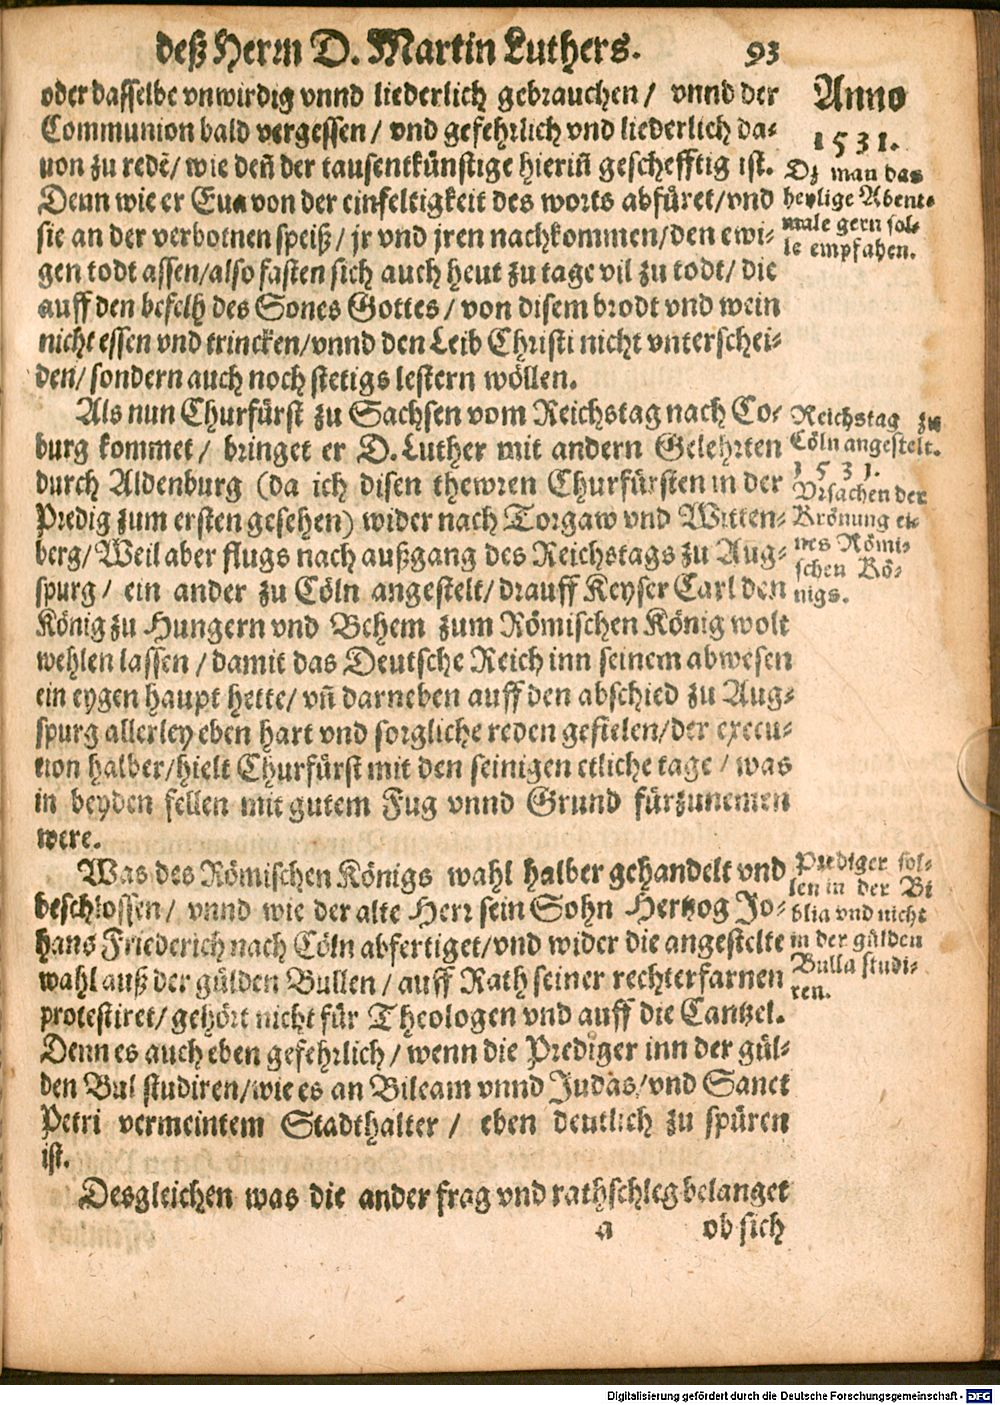 deß Herrn D. Martin Luthers. 93
oder dasselbe vnwirdig vnnd liederlich gebrauchen / vnnd der
Communion bald vergessen / vnd gefehrlich vnd liederlich da⸗
uon zu redē / wie deñ der tausentkünstige hieriñ geschefftig ist.
Denn wie er Eua von der einfeltigkeit des worts abfüret / vnd
sie an der verbotnen speiß / jr vnd jren nachkommen / den ewi⸗
gen todt assen / also fasten sich auch heut zu tage vil zu todt / die
auff den befelh des Sones Gottes / von disem brodt vnd wein
nicht essen vnd trincken / vnnd den Leib Christi nicht vnterschei⸗
den / sondern auch noch stetigs lestern wöllen.
Als nun Churfürst zu Sachsen vom Reichstag nach Co⸗
burg kommet / bringet er D. Luther mit andern Gelehrten
durch Aldenburg (da ich disen thewren Churfürsten in der
Predig zum ersten gesehen) wider nach Torgaw vnd Witten⸗
berg / Weil aber flugs nach außgang des Reichstags zu Aug⸗
spurg / ein ander zu Cöln angestelt / drauff Keyser Carl den
König zu Hungern vnd Behem zum Römischen König wolt
wehlen lassen / damit das Deutsche Reich inn seinem abwesen
ein eygen haupt hette / vñ darneben auff den abschied zu Aug⸗
spurg allerley eben hart vnd sorgliche reden gefielen / der execu⸗
tion halber / hielt Churfürst mit den seinigen etliche tage / was
in beyden fellen mit gutem Fug vnnd Grund fürzunemen
were.
Was des Römischen Königs wahl halber gehandelt vnd
beschlossen / vnnd wie der alte Herr sein Sohn Hertzog Jo⸗
hans Friederich nach Cöln abfertiget / vnd wider die angestelte
wahl auß der gülden Bullen / auff Rath seiner rechterfarnen
protestiret / gehört nicht für Theologen vnd auff die Cantzel.
Denn es auch eben gefehrlich / wenn die Prediger inn der gül⸗
den Bul studiren / wie es an Bileam vnnd Judas / vnd Sanct
Petri vermeintem Stadthalter / eben deutlich zu spüren
ist.
Desgleichen was die ander frag vnd rathschleg belanget
a ob sich
Anno
1531.
Dz man das
heylige Abent⸗
male gern sol⸗
le empfahen.
Reichstag zu
Cöln angestelt.
1531.
Vrsachen der
Krönung ei⸗
nes Römi⸗
schen Kö⸗
nigs.
Prediger sol⸗
len in der Bi
blia vnd nicht
in der gülden
Bulla studi⸗
ren.
Digitalisierung gefördert durch die Deutsche Forschungsgemeinschaft - DFG